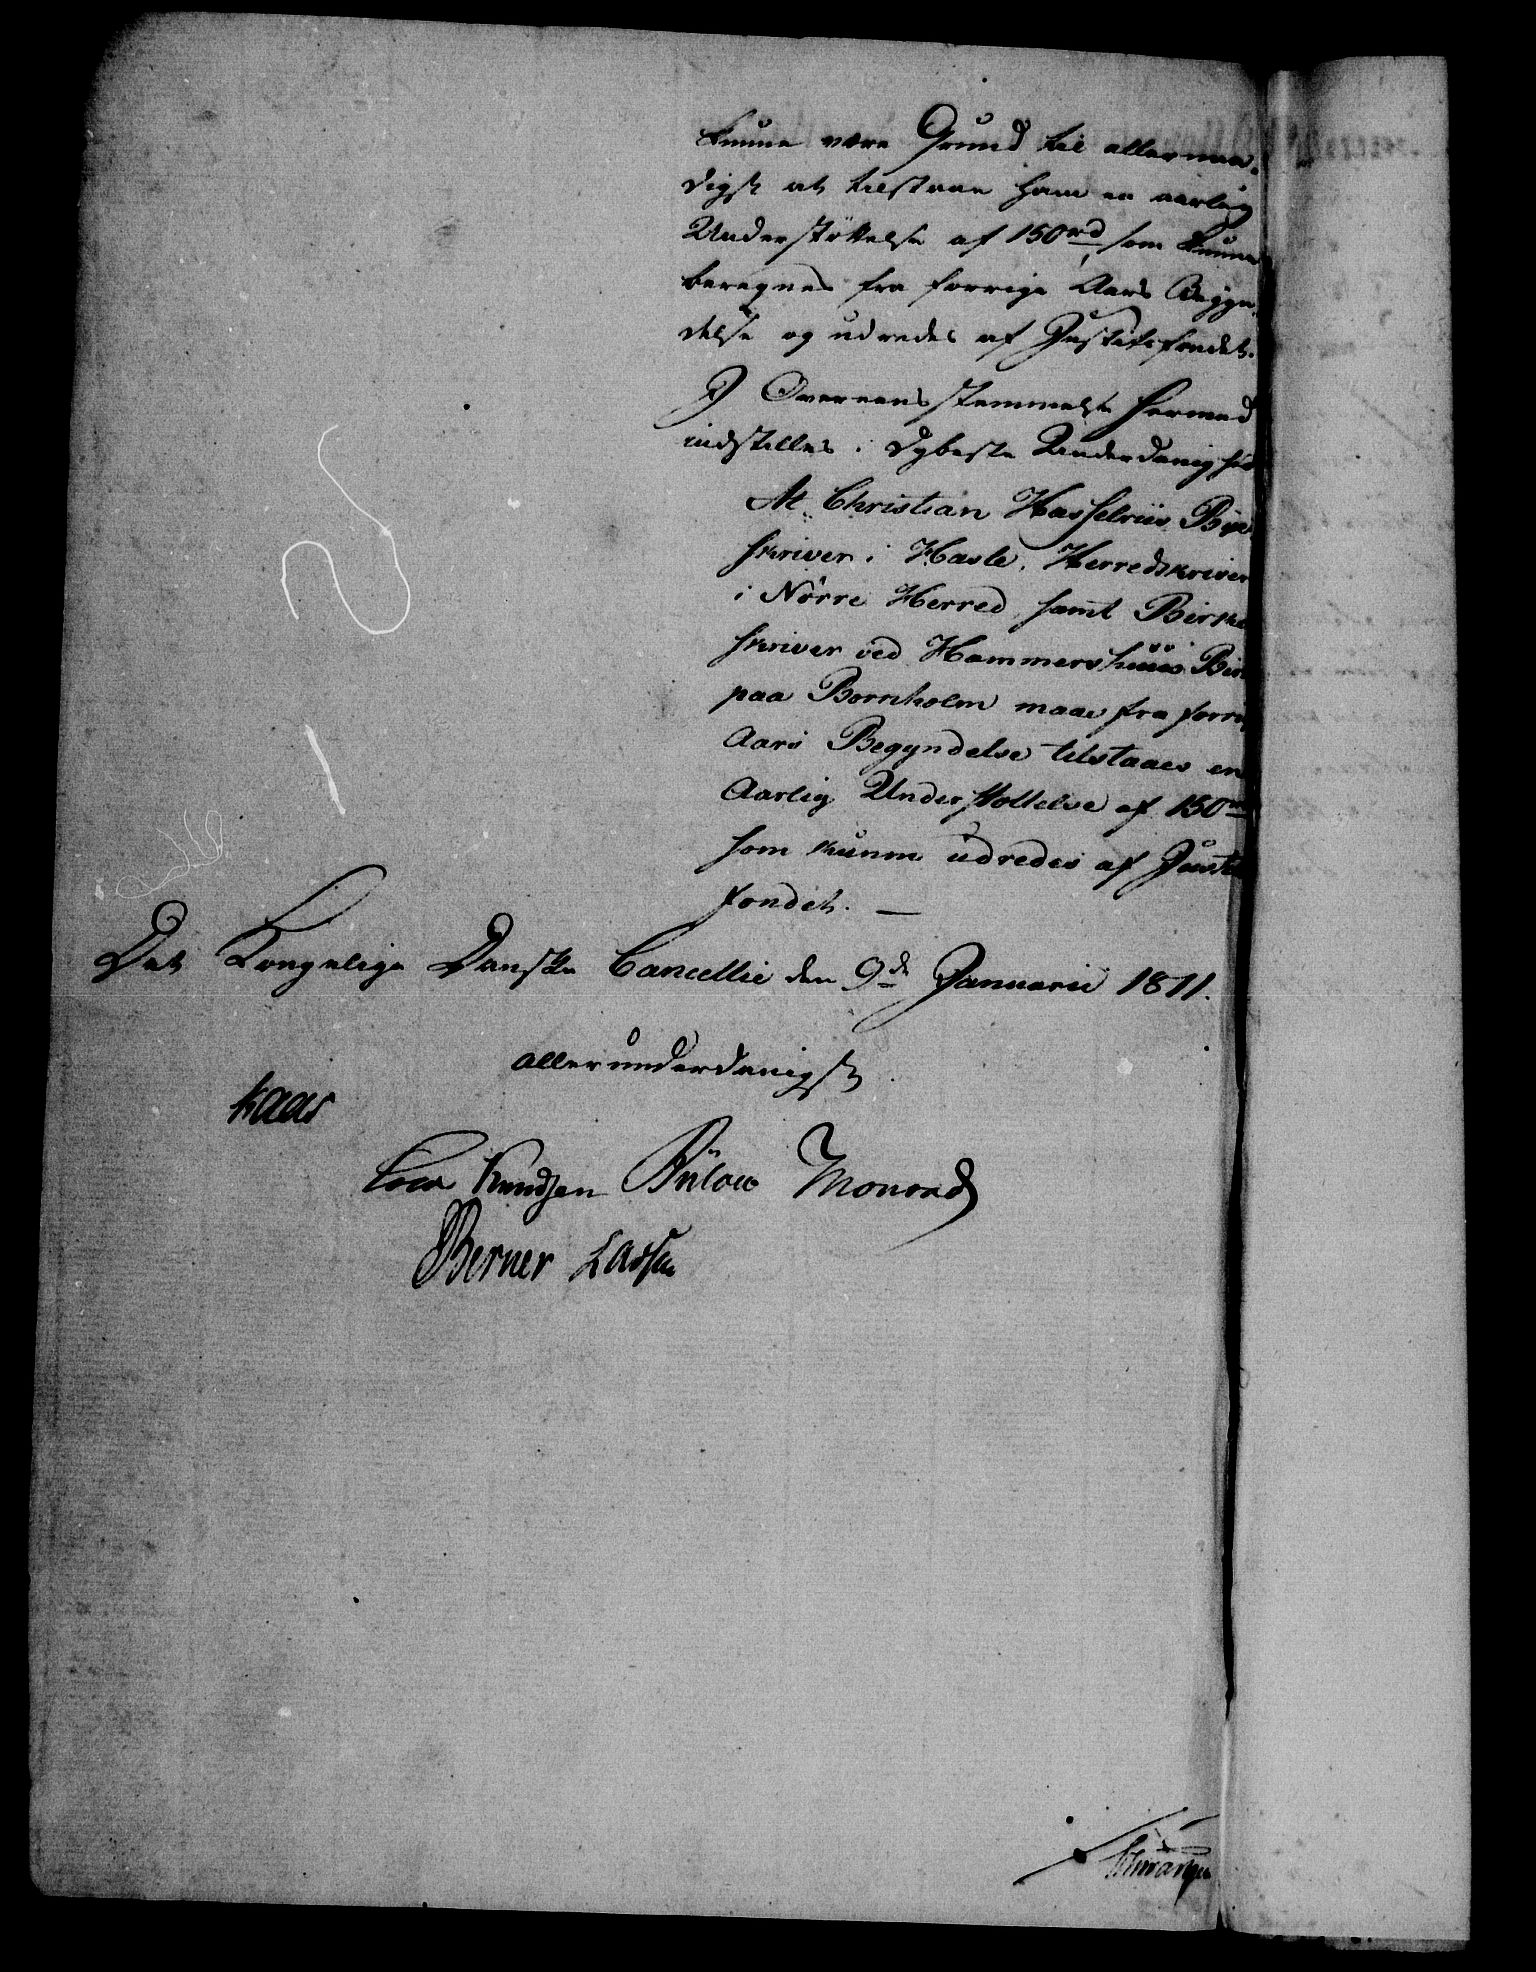 kunne være Grund til allernaa-
digst at tilstaae ham en aarlig
Understøttelse af 150 rd, som kunne
beregnes fra forrige Aars Begyn-
delse og udredes af Justitsfondet.
J Overeensstemmelse hermed
indstilles i dybeste Underdanighed
At Christian Hasselriis Bye
skriver i Hasle, Herredskriver
i Nörre Herred, samt Birke
skriver ved Hammershuus Birk
paa Bornholm maae fra forrig
Aars Begyndelse tilstaaes en
Aarlig Understöttelse af 150 rd
som kunne udredes af Justits
fondet. —
Det Kongelige Danske Cancellie den 9de Januarii 1811.
allerunderdanigst
Kaas
Cold Knudsen Bülow Monrad
Berner Lassen